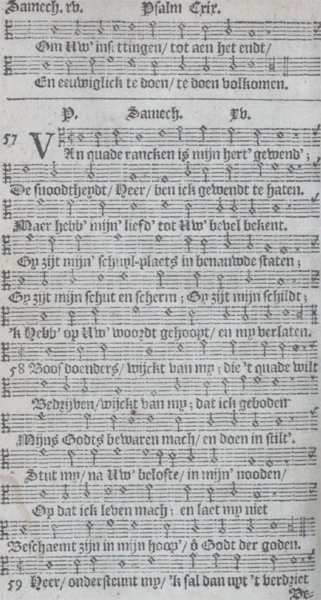 Samech. xv. Psalm Cxix.
Om Uw' insettingen/ tot aen het endt/
En eeuwiglick te doen/ te doen volkomen.
P. Samech. xv.
57 VAn quade rancken is mijn hert' gewend';
De snoodtheydt/ Heer/ ben ick gewendt te haten.
Maer hebb' mijn' liefd' tot Uw' bevel bekent.
Gy zijt mijn' schuyl-plaets in benauwde staten;
Gy zijt mijn schut en scherm; Gy zijt mijn schildt;
'k Hebb' op Uw' woordt gehoopt/ en my verlaten.
58 Boosdoenders/ wijckt van my; die 't quade wilt
Bedrijven/ wijckt van my; dat ick geboden
Mijns Godts bewaren mach/ en doen in stilt'.
Stut my/ na Uw' belofte/ in mijn' nooden/
Op dat ick leven mach; en laet my niet
Beschaemt zijn in mijn hoop'/ ô Godt der goden.
59 Heer/ ondersteunt my/ 'k sal dan uyt 't verdriet
Be-